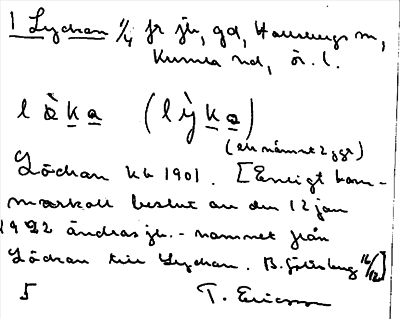 1 Lyckan 1/4 fr jb, gd, Hammars m,
Kumla hd, ör. l.
l ö̀ k a (l ỳ k a)
(ej nämnt 2 ggr)
Löckan kk 1901. [Enligt kam-
markoll beslut av den 12 jan
1922 ändras jb. - namnet från
Löckan till Lyckan. B. 16/12]
5 T. Ericsson